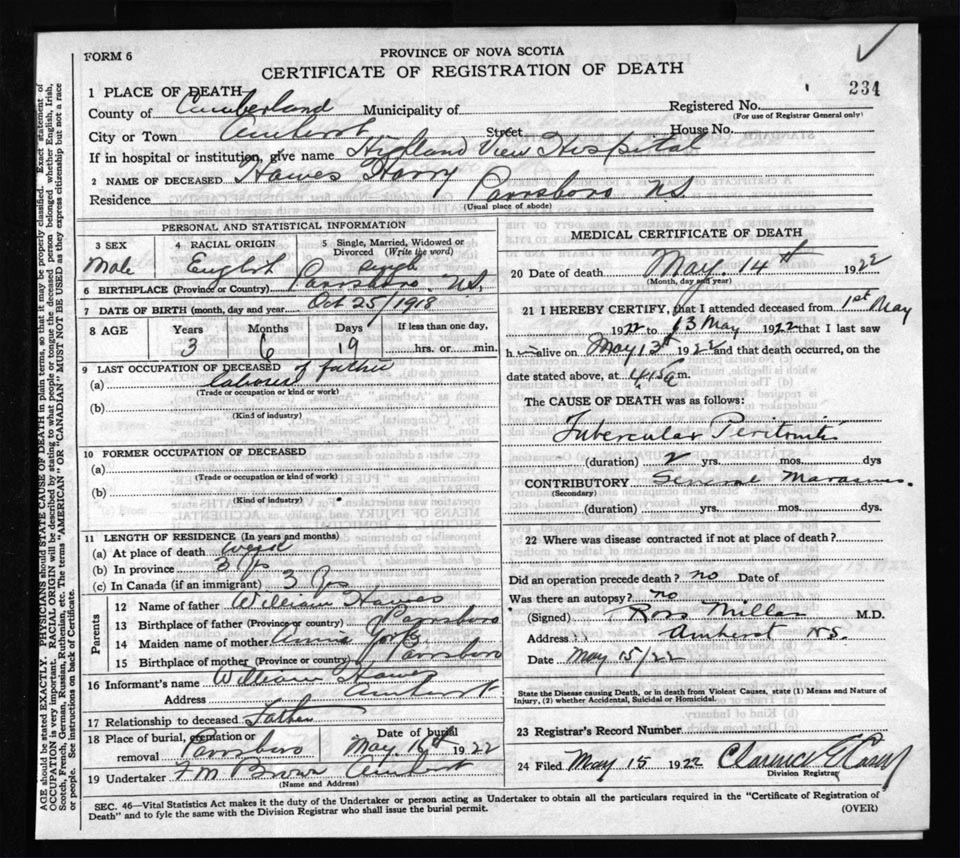 FORM 6
PROVINCE OF NOVA SCOTIA
CERTIFICATE OF REGISTRATION OF DEATH
234
1 PLACE OF DEATH
County of Cumberland Municipality of Registered No.
(For use of Registrar General only)
City or Town Amherst Street House No.
If in hospital or institution, give name Highland View Hospital
2 NAME OF DECEASED Hawes Harry
Residence Parrsboro N.S.
(Usual place of abode)
PERSONAL AND STATISTICAL INFORMATION
3 SEX 4 RACIAL ORIGIN 5 Single, Married, Widowed or Divorced (Write the word)
Male English single
6 BIRTHPLACE (Province or Country) Parrsboro. N.S.
7 DATE OF BIRTH (month, day and year) Oct 25/1918
8 AGE Years Months Days If less than one day,
3 6 19 hrs. or min.
9 LAST OCCUPATION OF DECEASED of father
(a) laborer
(Trade or occupation or kind of work)
(b)
(Kind of industry)
10 FORMER OCCUPATION OF DECEASED
(a)
(Trade or occupation or kind of work)
(b)
(Kind of industry)
11 LENGTH OF RESIDENCE (In years and months)
(a) At place of death week
(b) In province 3 yrs
(c) In Canada (if an immigrant) 3 yrs
Parents
12 Name of father William Hawes
13 Birthplace of father (Province or country) Parrsboro
14 Maiden name of mother Annie York
15 Birthplace of mother (Province or country) Parrsboro
16 Informant's name William Hawes
Address Amherst
17 Relationship to deceased Father
18 Place of burial, cremation or removal Parrsboro Date of burial May 16th 1922
19 Undertaker F M Brown Amherst
(Name and Address)
MEDICAL CERTIFICATE OF DEATH
20 Date of death May. 14th 1922
(Month, day and year)
21 I HEREBY CERTIFY, that I attended deceased from 1st May
1922 to 13 May 1922 that I last saw
h alive on May 13th 1922 and that death occurred, on the
date stated above, at m.
The CAUSE OF DEATH was as follows:
Tubercular Peritonitis
(duration) 2 yrs. mos. dys
CONTRIBUTORY General Marasmus.
(Secondary)
(duration) yrs. mos. dys.
22 Where was disease contracted if not at place of death?
Did an operation precede death? no Date of
Was there an autopsy? no
(Signed) Ross Millar M.D.
Address Amherst N.S.
Date May 15/22
State the Disease causing Death, or in death from Violent Causes, state (1) Means and Nature of
Injury, (2) whether Accidental, Suicidal or Homicidal.
23 Registrar's Record Number
24 Filed May 15 1922 Clarence E
Division Registrar
SEC. 46—Vital Statistics Act makes it the duty of the Undertaker or person acting as Undertaker to obtain all the particulars required in the "Certificate of Registration of
Death" and to fyle the same with the Division Registrar who shall issue the burial permit.
(OVER)
AGE should be stated EXACTLY. PHYSICIANS should STATE CAUSE OF DEATH in plain terms, so that it may be properly classified. Exact statement of
OCCUPATION is very important. RACIAL ORIGIN will be described by stating to what people or tongue the deceased person belonged whether English, Irish,
Scotch, French, German, Russian, Ruthenian, etc. The terms "AMERICAN" OR "CANADIAN" MUST NOT BE USED as they express citizenship but not a race
or people. See instructions on back of Certificate.